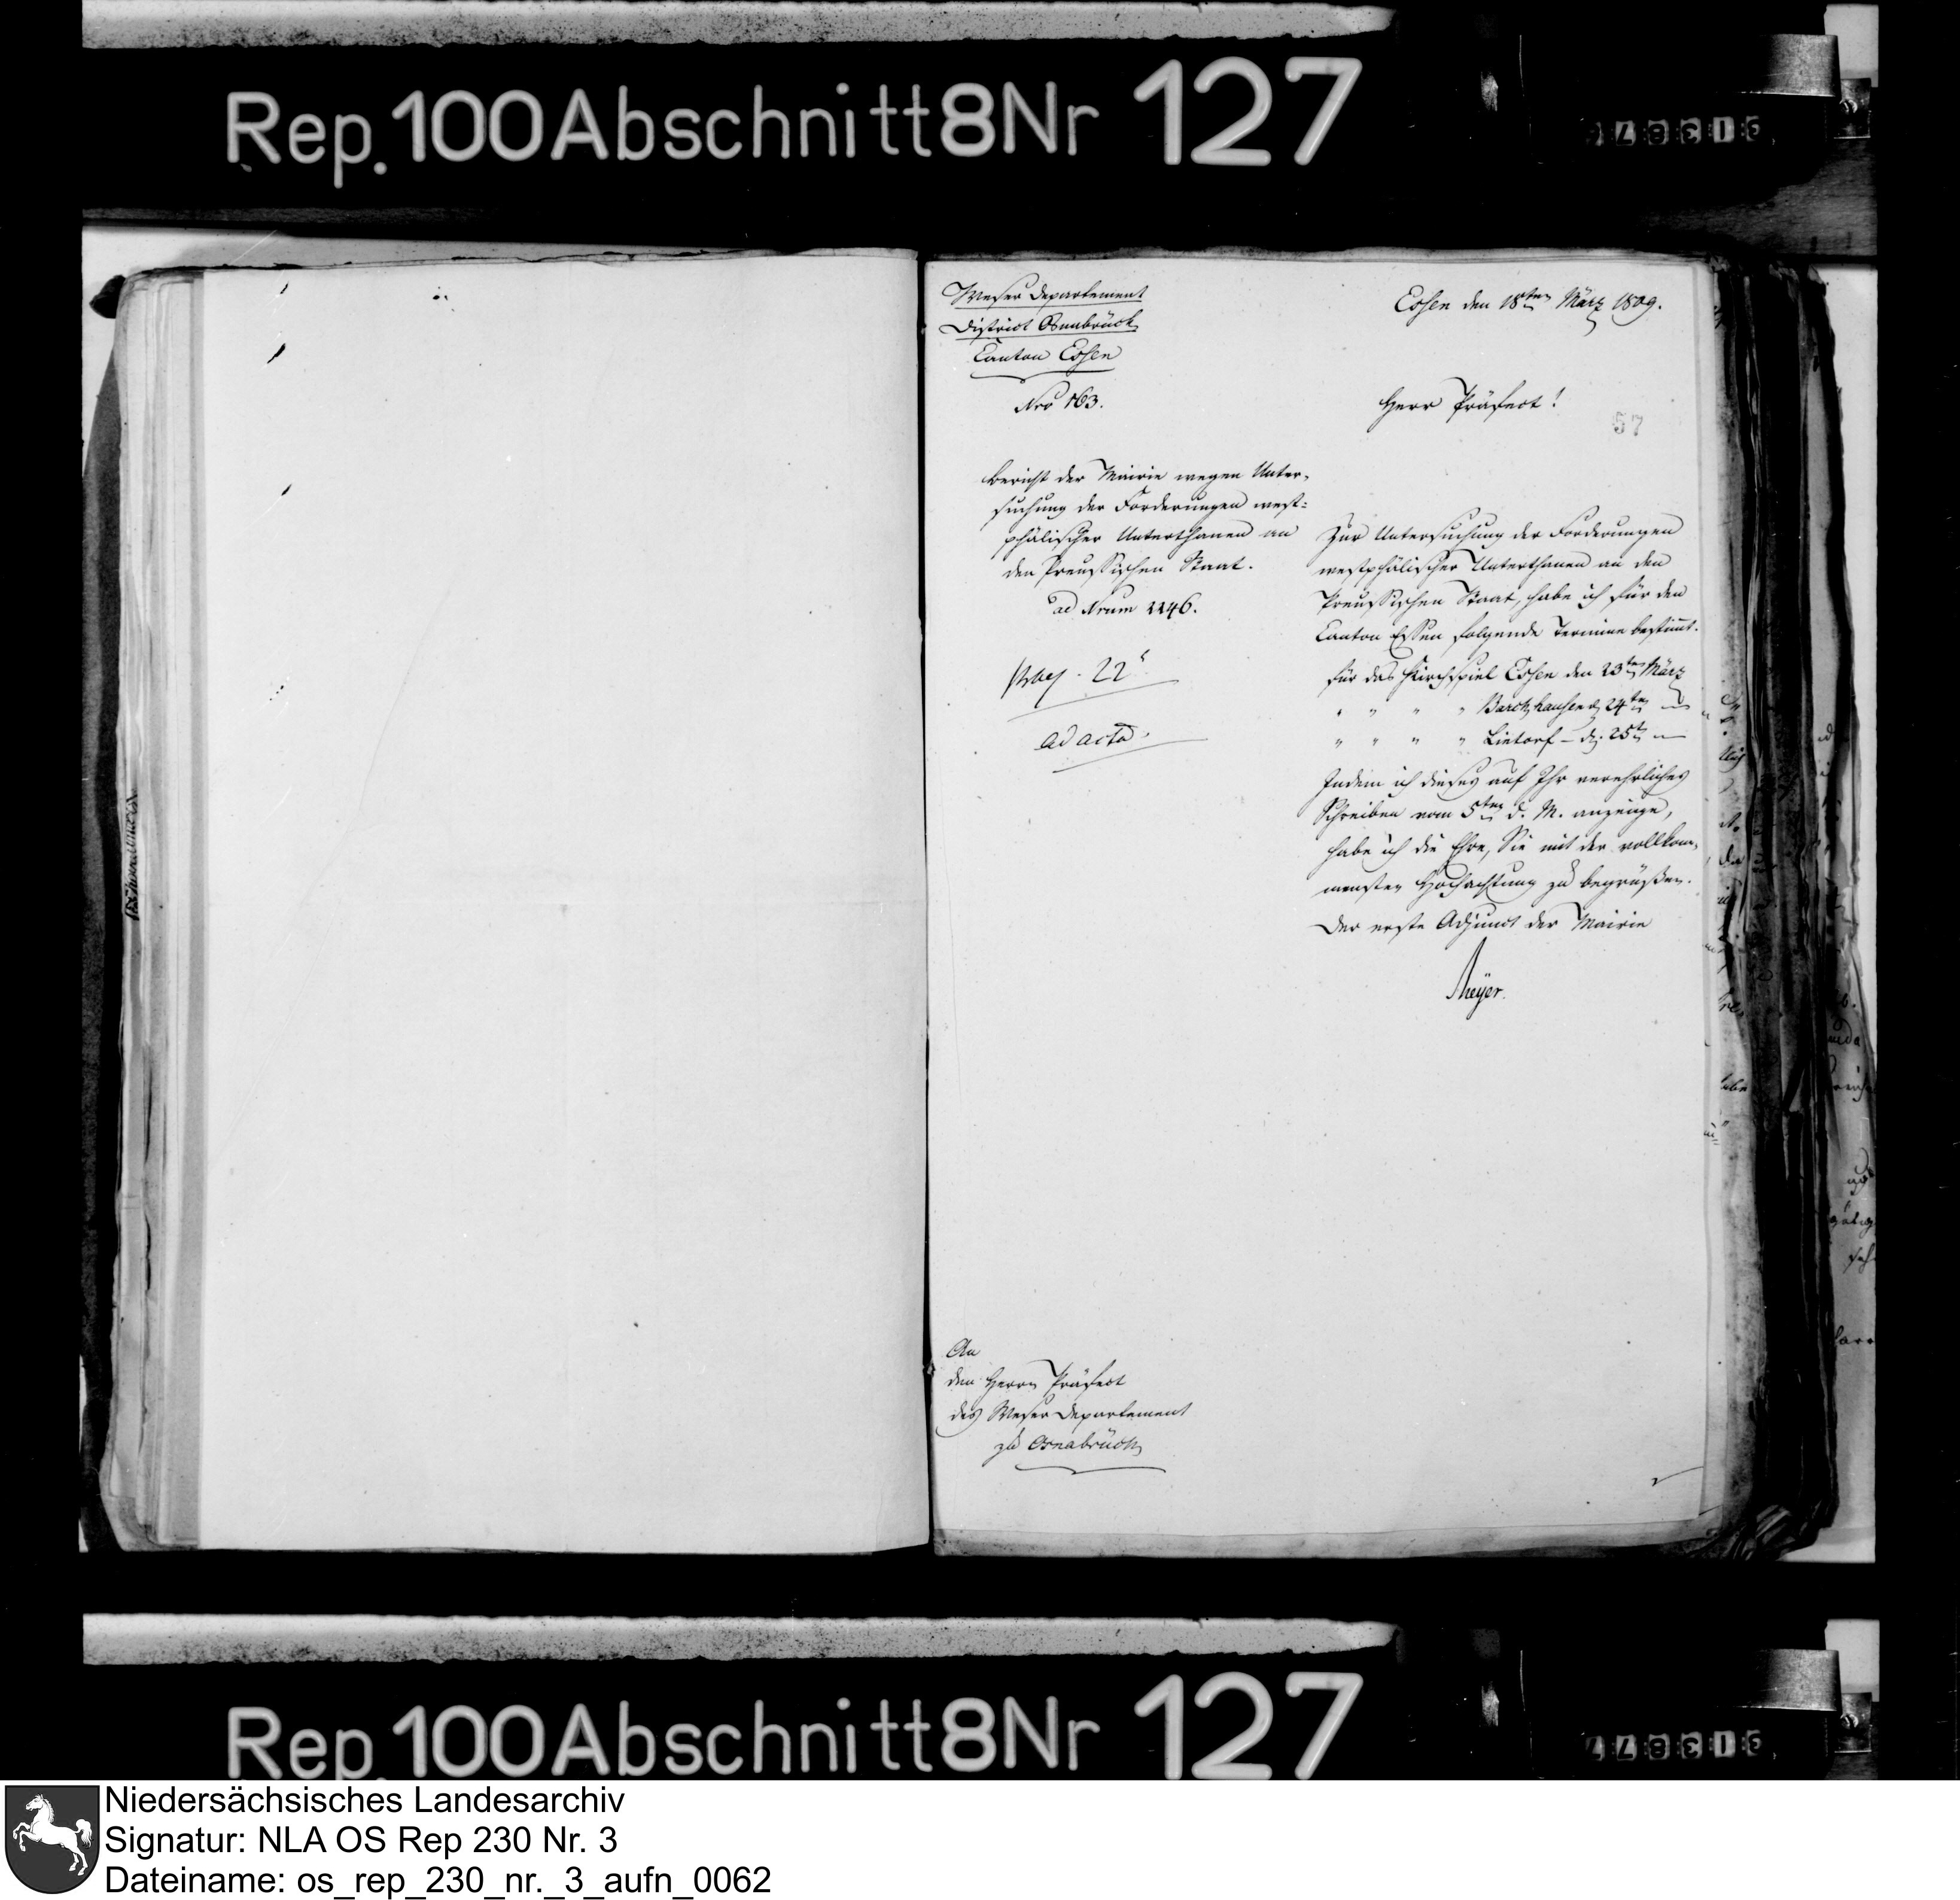 Rep. 100 Abschnitt 8 Nr 127
Weser Departement
District Osnabrück
Canton Essen
Nro 163.
Essen den 18ten März 1809.
Herr Präfect!
57
Bericht der Mairie wegen Unter-
suchung der Forderungen west-
phälischer Unterthanen an
den Preussischen Staat.
ad Nrum 1146.
22
ad acta
Zur Untersuchung der Forderungen
westphälischer Unterthanen an den
Preussischen Staat, habe ich für den
Canton Essen folgende Termine bestimt.
für das Kirchspiel Essen den 23ten März
" " " " Barckhausen d. 24ten —
" " " " Lintorf – d. 25t —
Indem ich dieses auf Ihr verehrliches
Schreiben vom 5ten d. M. anzeige,
habe ich die Ehre, Sie mit der vollkom-
mensten Hochachtung zu begrüßen.
Der erste Adjunct der Mairie
Meÿer.
An
den Herrn Präfect
des Weser Departement
zu Osnabrück
Rep. 100 Abschnitt 8 Nr 127
Niedersächsisches Landesarchiv
Signatur: NLA OS Rep 230 Nr. 3
Dateiname: os_rep_230_nr._3_aufn_0062